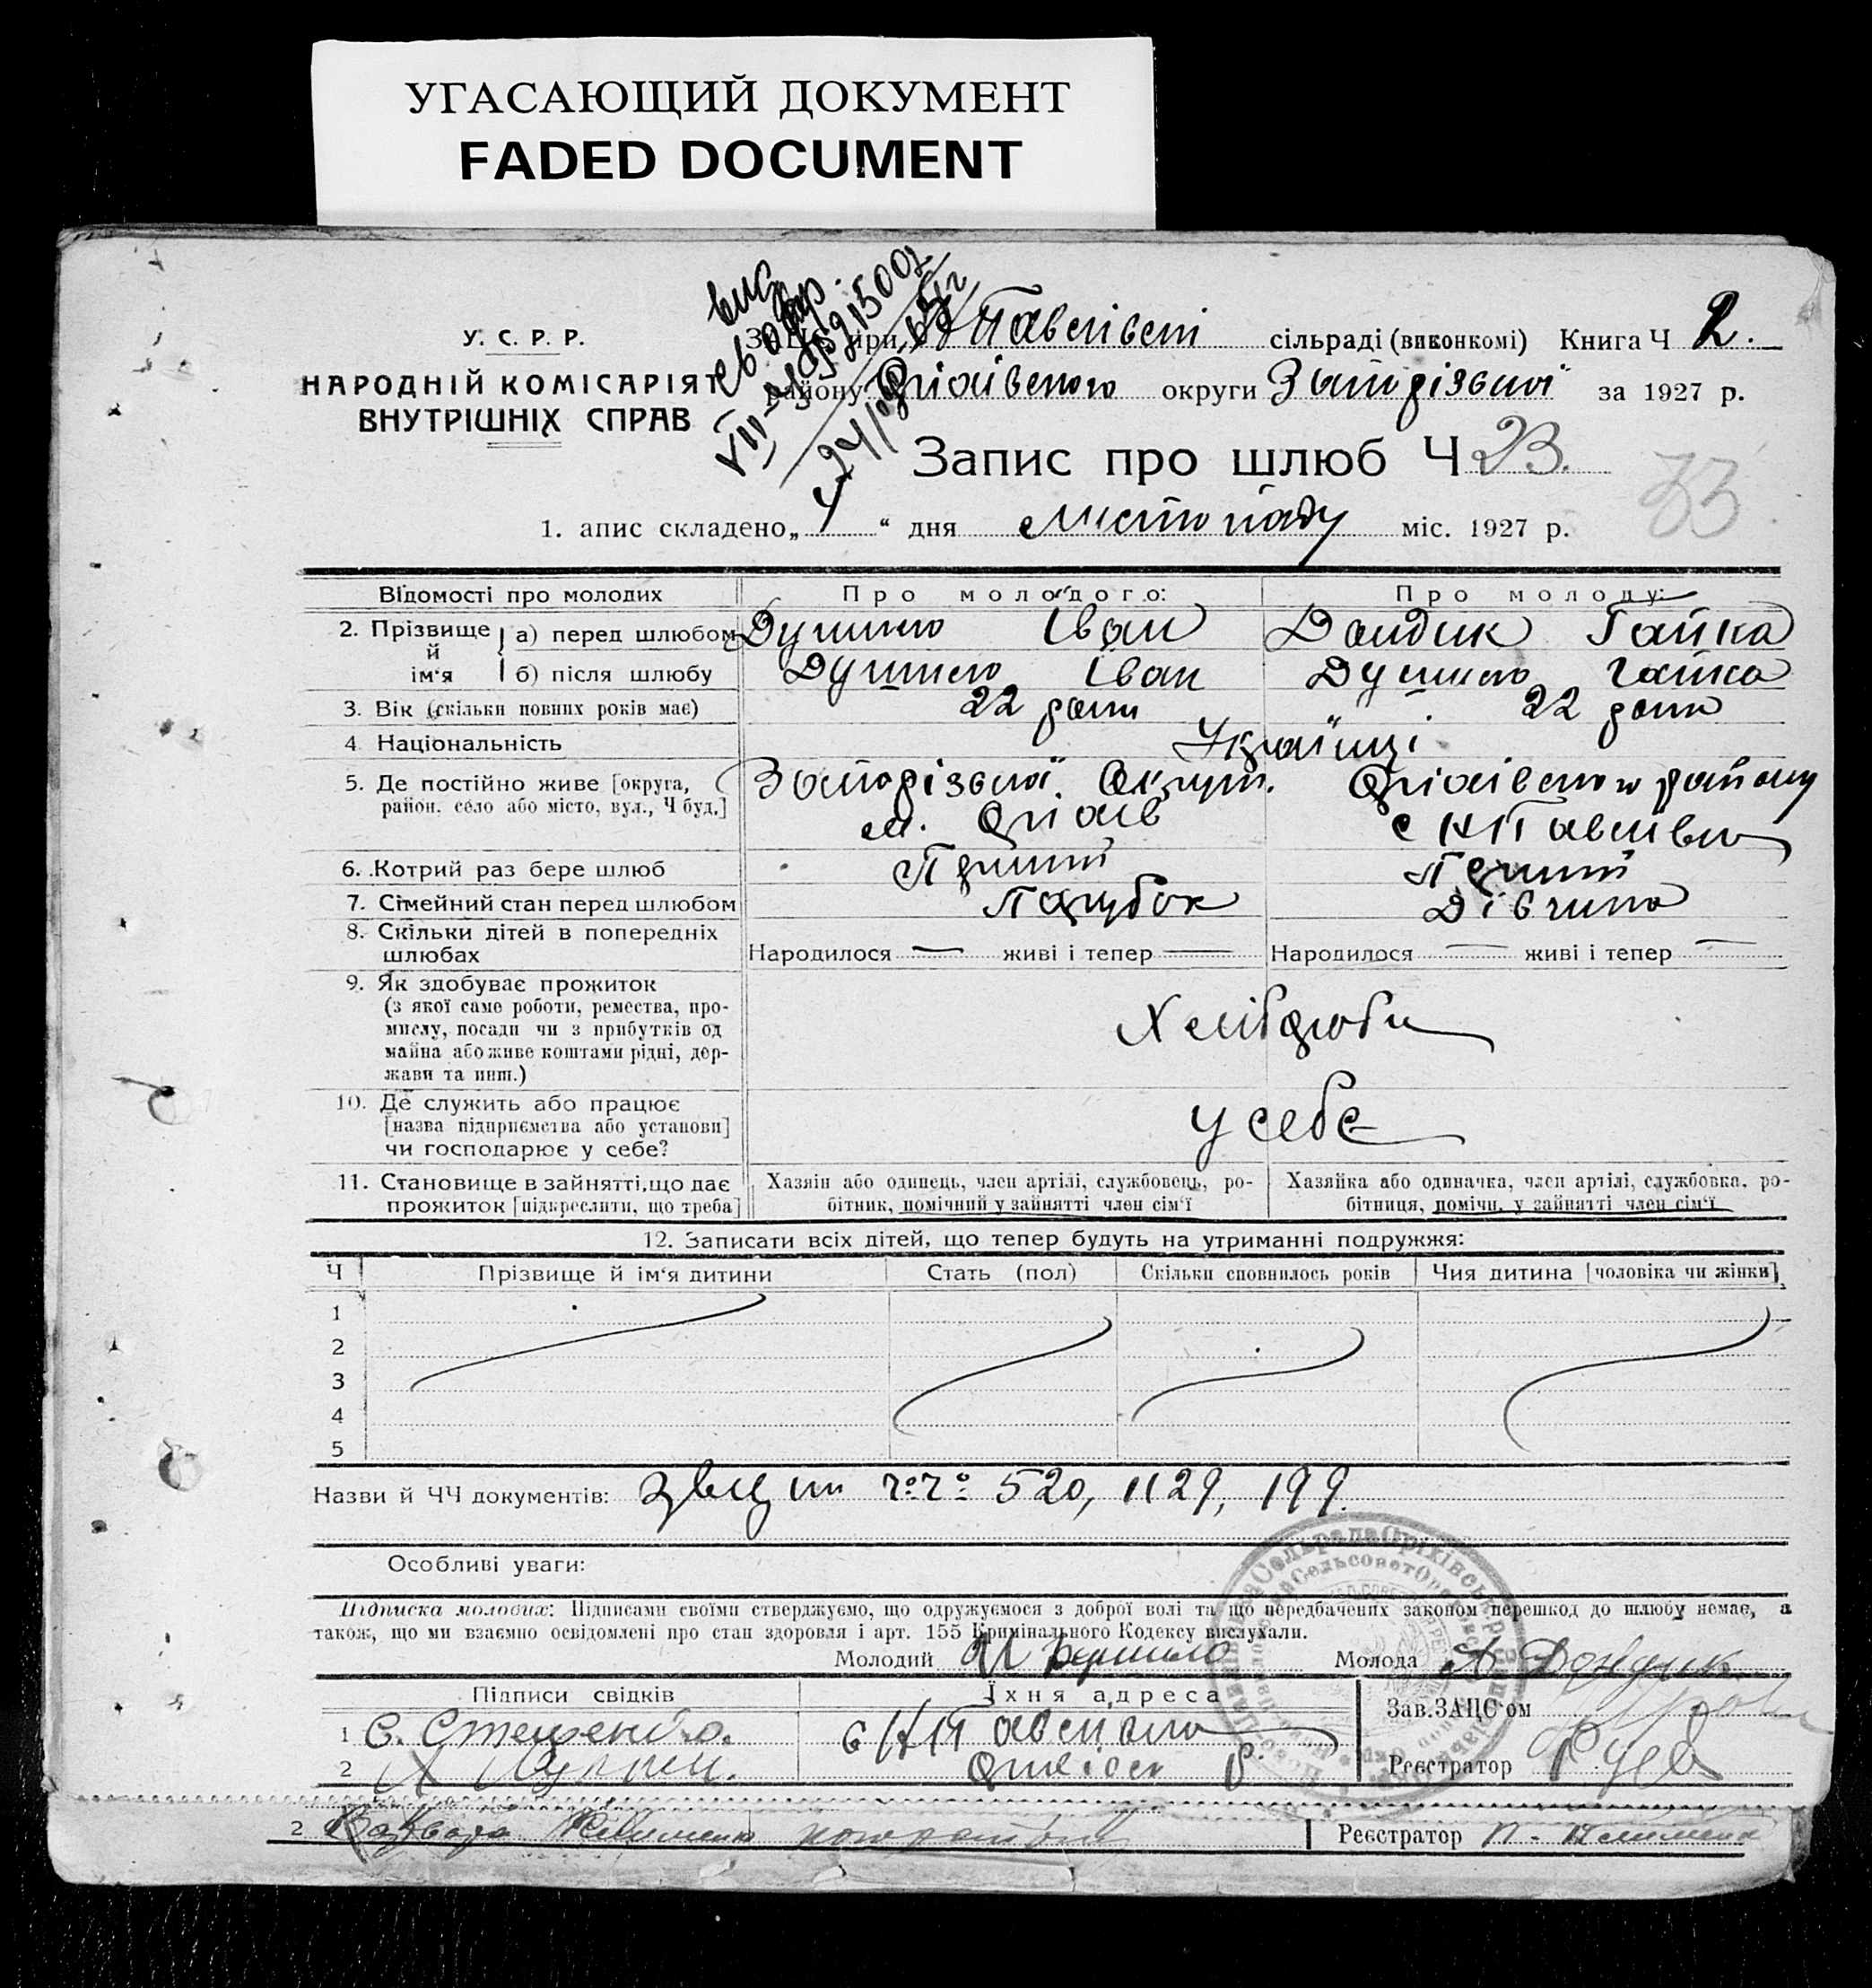 УГАСАЮЩИЙ ДОКУМЕНТ
FADED DOCUMENT
У. С. Р. Р.
НАРОДНІЙ КОМІСАРІЯТ
ВНУТРІШНІХ СПРАВ
при Н Павлівсьті сільраді (виконкомі) Книга Ч 2.
району Оріхівського округи Запорізької за 1927 р.
Запис про шлюб Ч 23.
33
1. апис складено „4“ дня Листопаду міс. 1927 р.
Відомості про молодих Про молодого: Про молоду:
2. Прізвище й ім'я а) перед шлюбом Душко Іван Дондик Ганка
б) після шлюбу Душко Іван Душко Ганка
3. Вік (скільки повних років має) 22 роки 22 роки
4 Національність Українці
5. Де постійно живе [округа, район, село або місто, вул., Ч буд.] Запорізької Округи. Оріхівського району
м. Оріхів с Н Павлівка
6. Котрий раз бере шлюб Перший Перший
7. Сімейний стан перед шлюбом Парубок Дівчина
8. Скільки дітей в попередніх шлюбах Народилося — живі і тепер — Народилося — живі і тепер —
9. Як здобуває прожиток
(з якої саме роботи, ремества, про-
мислу, посади чи з прибутків од
майна або живе коштами рідні, дер-
жави та инш.) Хлібороби
10. Де служить або працює
[назва підприємства або установи]
чи господарює у себе? у себе
11. Становище в зайнятті, що дає прожиток [підкреслити, що треба] Хазяін або одинець, член артілі, службовець, ро-
бітник, помічний у зайнятті член сім'ї
Хазяйка або одиначка, член артілі, службовка, ро-
бітниця, помічн. у зайнятті член сім'ї
12. Записати всіх дітей, що тепер будуть на утриманні подружжя:
Ч Прізвище й ім'я дитини Стать (пол) Скільки сповнилось років Чия дитина [чоловіка чи жінки]
1
2
3
4
5
Назви й ЧЧ документів: 520, 1129, 199
Особливі уваги:
Підписка молодих: Підписами своїми стверджуємо, що одружуємося з доброї волі та що передбачених законом перешкод до шлюбу немає, а
також, що ми взаємно освідомлені про стан здоровля і арт. 155 Кримінального Кодексу вислухали.
Молодий Молода А Дондик
Підписи свідків Їхня адреса Зав. ЗАЦС'ом
1 С. Стеценко. с Н Павлівка
2 Оріхів Реєстратор
2 Реєстратор